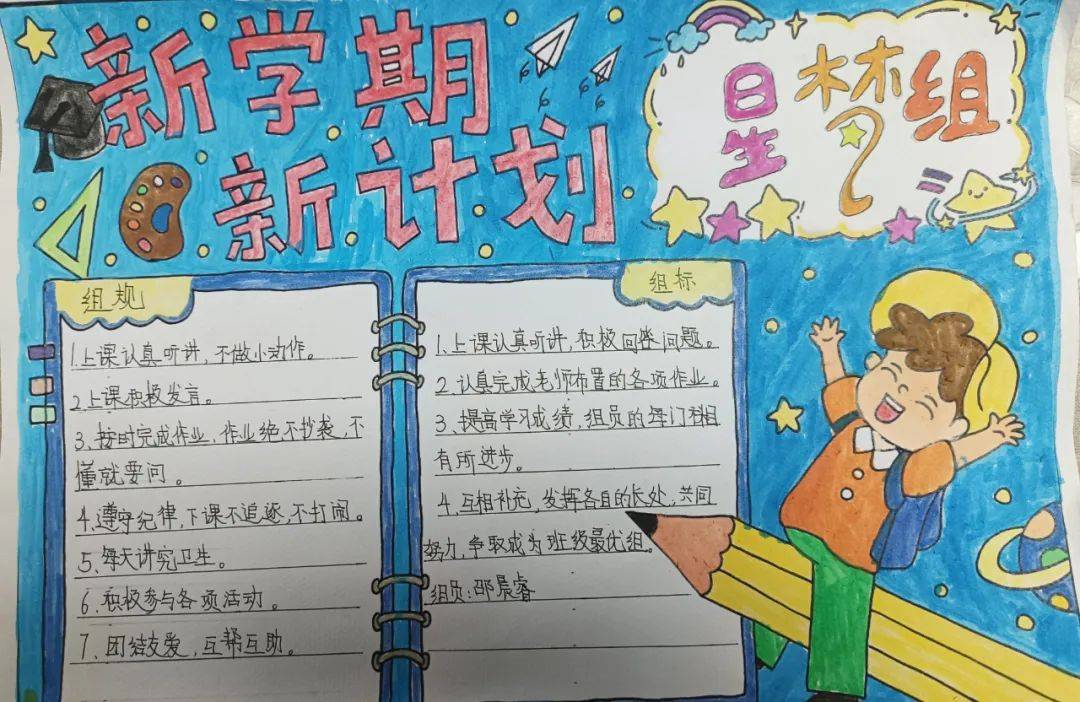 新学期
新计划
星梦组
组规
1.上课认真听讲,不做小动作。
2.上课积极发言。
3、按时完成作业,作业绝不抄袭,不
懂就要问。
4、遵守纪律,下课不追逐,不打闹。
5、每天讲究卫生。
6、积极参与各项活动。
7、团结友爱,互帮互助。
组标
1.上课认真听讲,积极回答问题。
2.认真完成老师布置的各项作业。
3、提高学习成绩,组员的每门科相
有所进步。
4.互相补充,发挥各自的长处,共同
努力,争取成为班级最优组。
组员:邵晨睿